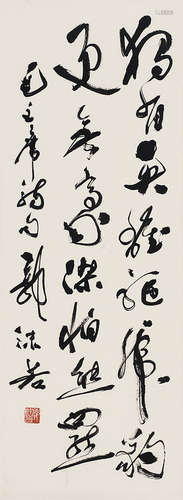 独有英雄驱虎豹
更无豪杰怕熊罴
毛主席诗句 郭沫若